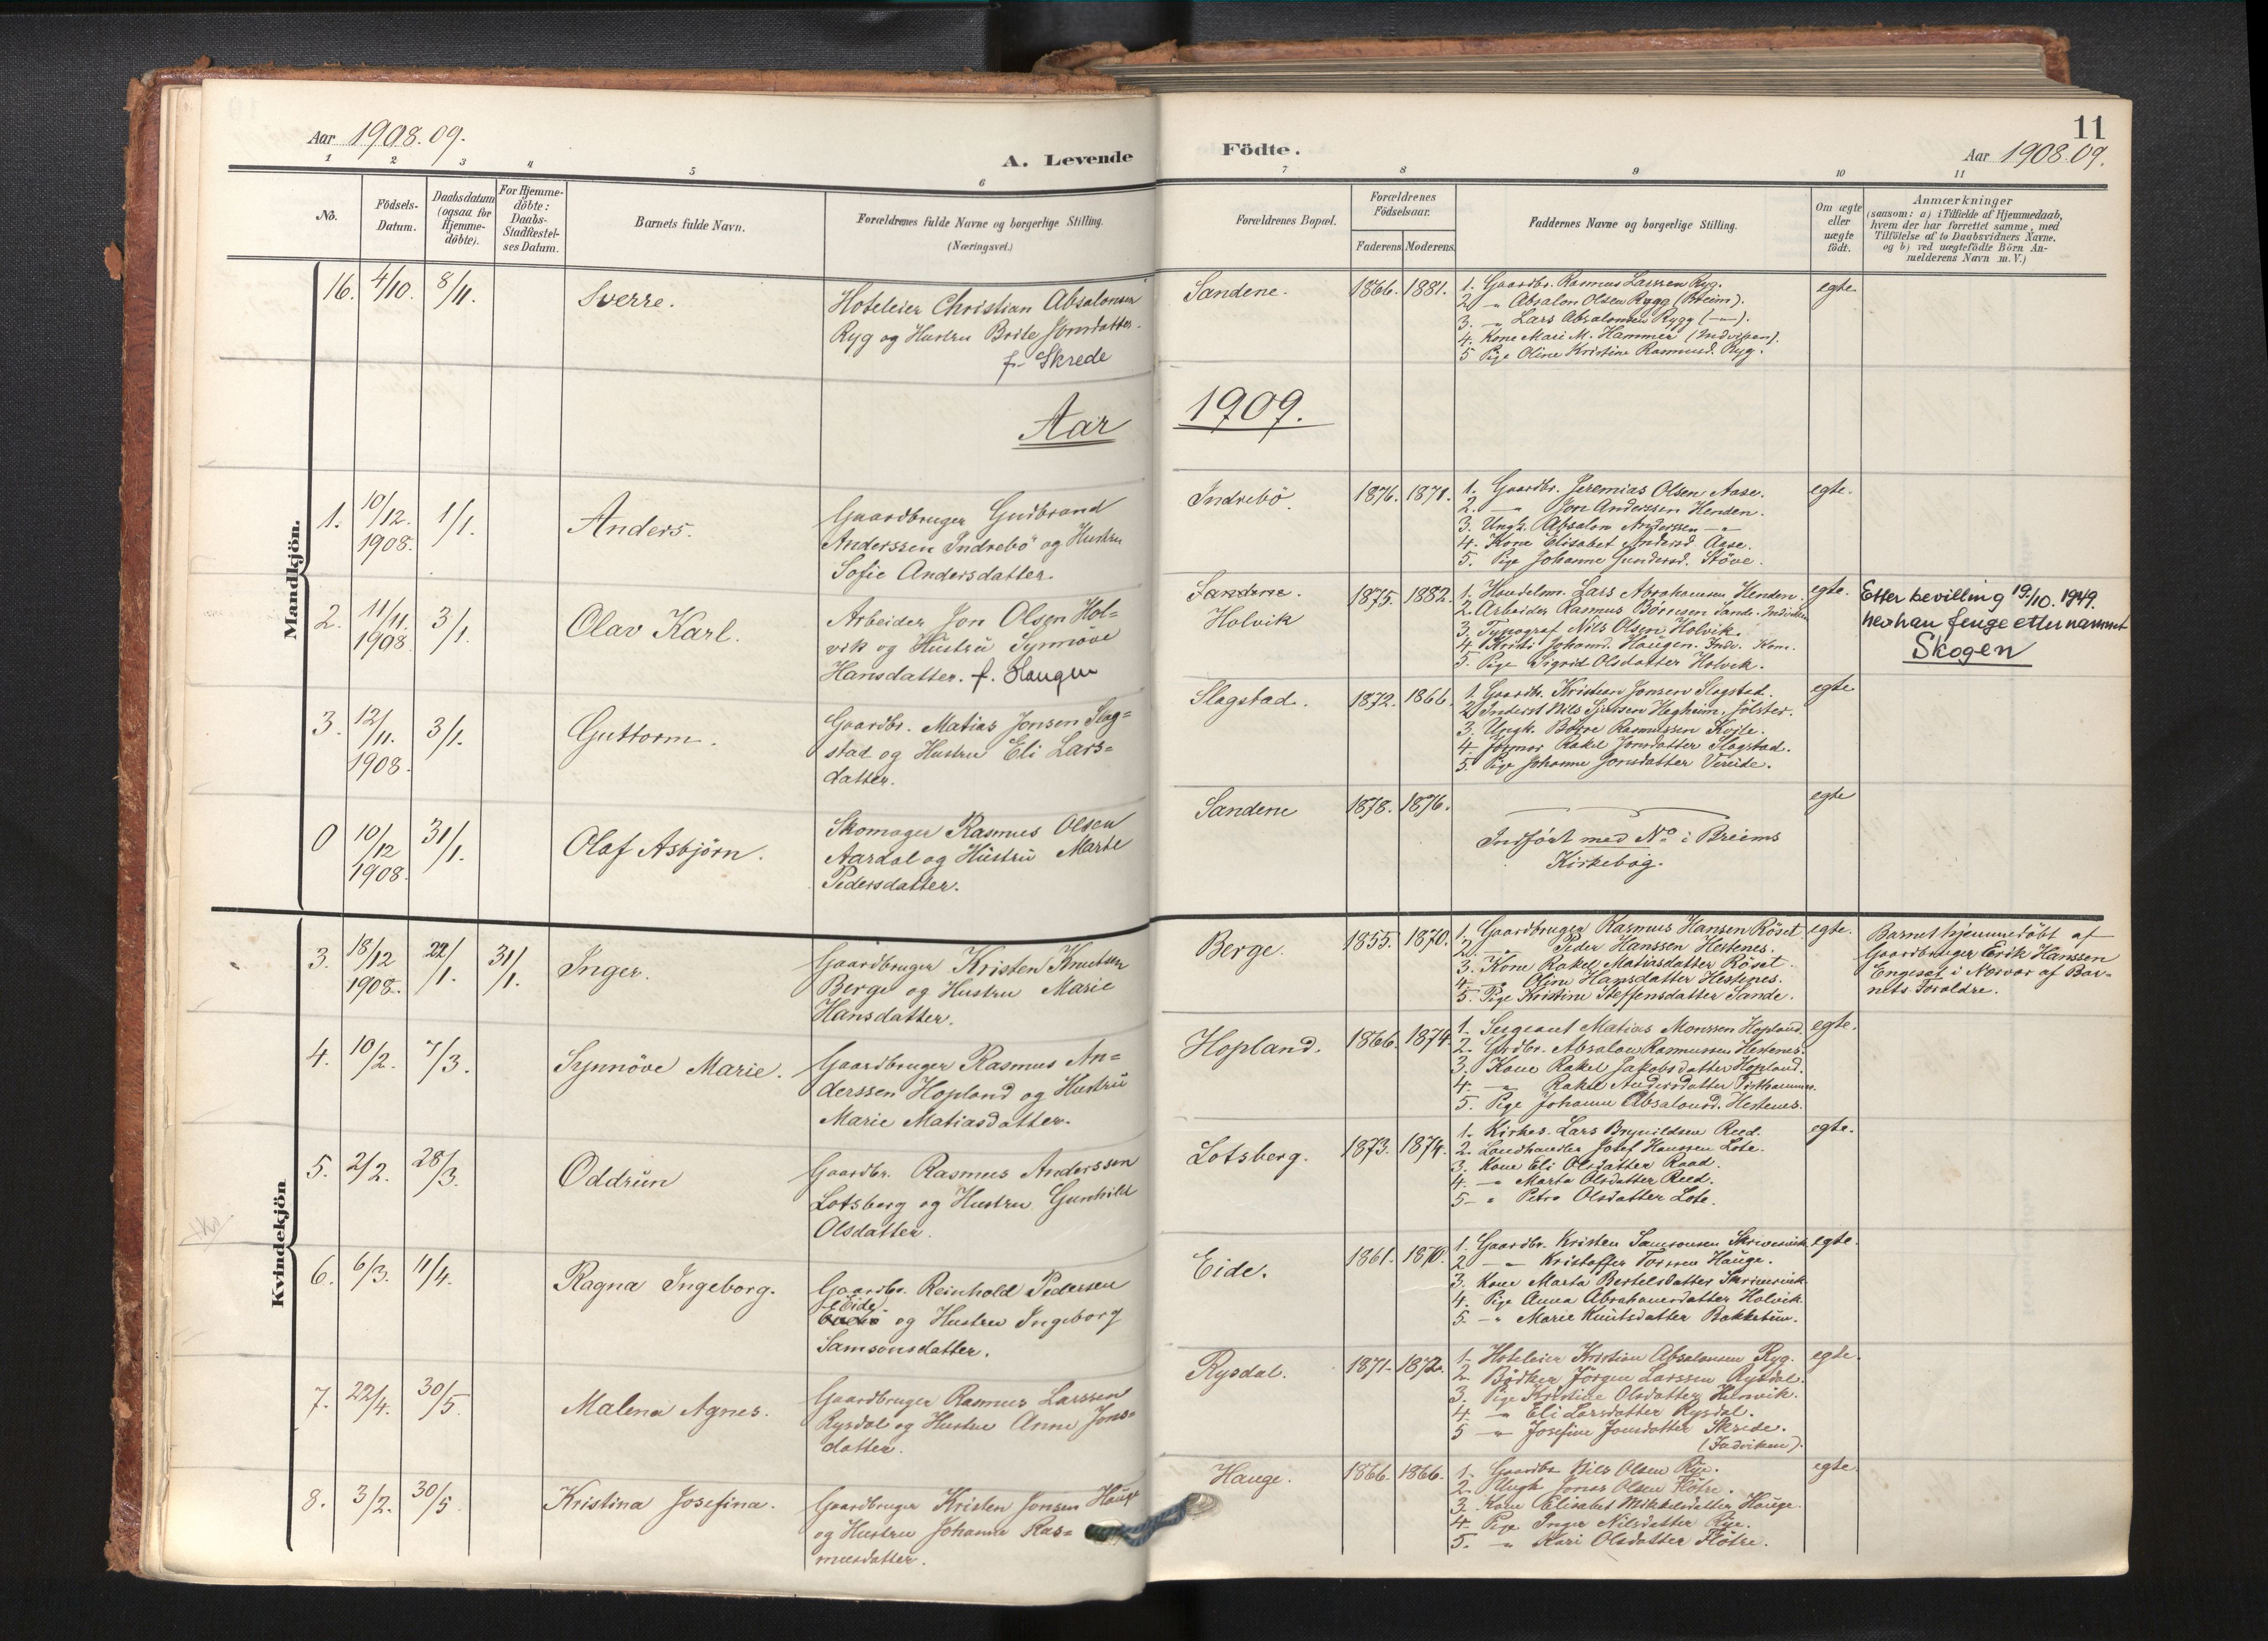 Aar 1908.09.
A. Levende
Födte.
11
Aar 1908.09.
1 2 3 4 5 6 7 8 9 10 11
No.
Födsels-Datum.
Daabsdatum (ogsaa for Hjemme-döbte).
For Hjemme-döbte: Daabs-Stadfæstel-ses Datum.
Barnets fulde Navn.
Forældrenes fulde Navne og borgerlige Stilling.
(Næringsvei.)
Forældrenes Bopæl.
Forældrenes Födselsaar.
Faderens. Moderens.
Faddernes Navne og borgerlige Stilling.
Om ægte eller uægte födt.
Anmærkninger
(saasom: a) i Tilfælde af Hjemmedaab,
hvem der har forrettet samme, med
Tilföielse af to Daabsvidners Navne.
og b) ved uægtefödte Börn An-
melderens Navn m. V.)
Mandkjön.
16. 4/10. 8/11. Sverre.
Hoteleier Christian Absalonsen
Ryg og Hustru Brite Jonsdatter.
f. Skrede
Sandene. 1866. 1881.
1. Gaardbr. Rasmus Larssen Ryg.
2. -"- Absalon Olsen Rygg (Breim).
3. -"- Lars Absalonsen Rygg (-"-).
4. Kone Mari M. Hammer (Indviken).
5 Pige Oline Kristine Rasmusd. Ryg.
egte
Aar 1909.
1. 10/12. 1908. 1/1. Anders.
Gaardbruger Gudbrand
Anderssen Indrebö og Hustru
Sofie Andersdatter.
Indrebö. 1876. 1871.
1. Gaardbr. Jeremias Olsen Aase.
2. -"- Jon Anderssen Henden.
3. Ungk. Absalon Anderssen -"-
4. Kone Elisabet Andersd. Aase.
5. Pige Johanne Gundersd. Stöve.
egte.
2. 11/11. 1908 3/1. Olav Karl.
Arbeider Jon Olsen Hol=
vik og Hustru Synnøve
Hansdatter. f. Haugen
Sandene.
Holvik
1875. 1882.
1. Handelsm. Lars Abrahamsen Henden.
2. Arbeider Rasmus Börnsen Sande. Indviken
3. Typograf Nils Olsen Holvik.
4. Kristi Johannd. Haugen. Indv. Kone.
5. Pige Sigrid Olsdatter Holvik.
egte.
Etter bevilling 19./10. 1949.
hev han fenge etternamnet
Skogen
3. 12/11. 1908. 3/1. Guttorm.
Gaardbr. Matias Jonsen Slag=
stad og Hustru Eli Lars=
datter.
Slagstad. 1872. 1866.
1. Gaardbr. Kristian Jonsen Slagstad.
2. Inderst Nils Sjursen Hegheim, Jölster.
3. Ungk. Börre Rasmussen Kvile.
4. Jormor Rakel Jonsdatter Slagstad.
5. Pige Johanne Jonsdatter Vereide.
egte
0 10/12 1908. 31/1. Olaf Asbjörn.
Skomager Rasmus Olsen
Aardal og Hustru Marte
Pedersdatter.
Sandene 1878. 1876.
Indfört med No i Breims
Kirkebog.
egte
Kvindekjön
3. 18/12 1908. 22/1. 31/1. Inger.
Gaardbruger Kristen Knutsen
Berge og Hustru Marie
Hansdatter.
Berge. 1855. 1870.
1. Gaardbruger Rasmus Hansen Röset.
2. -"- Peder Hanssen Hestenes.
3. Kone Rakel Matiasdatter Röset.
4. -"- Oline Hansdatter Hestenes.
5. Pige Kristine Steffensdatter Sande.
egte.
Barnet hjemmedöbt af
Gaardbruger Erik Hanssen
Engeset i Nærvær af Bar=
nets Foraldre.
4. 10/2. 7/3. Synnöve Marie.
Gaardbruger Rasmus An=
derssen Hopland og Hustru
Marie Matiasdatter.
Hopland. 1866. 1874.
1. Sergeant Matias Monssen Hopland.
2. Grdbr. Absalon Rasmussen Hestenes.
3. Kone Rakel Jakobsdatter Hopland.
4. -"- Rakel Andersdatter
5. Pige Johanne Absalonsd. Hestenes.
egte.
5. 2/2. 28/3. Oddrun
Gaardbr. Rasmus Anderssen
Lotsberg og Hustru Gunhild
Olsdatter.
Lotsberg. 1873. 1874.
1. Kirkes. Lars Brynildsen Reed.
2. Landhandler Josef Hanssen Lote.
3. Kone Eli Olsdatter Raad.
4. -"- Marta Olsdatter Reed.
5. " Petra Olsdatter Lote.
egte.
6. 6/3. 11/4. Ragna Ingeborg.
Gaardbr. Reinhold Pedersen
(Eide)
og Hustru Ingeborg
Samsonsdatter.
Eide. 1861. 1870.
1. Gaardbr. Kristen Samsonsen Skrivervik
2. -"- Kristoffer Torsen Hauge.
3. Kone Marta Bertelsdatter Skrivervik
4. Pige Anna Abrahamsdatter Holvik.
5. -"- Marie Knutsdatter Bakketun.
egte.
7. 22/4. 30/5. Malena Agnes.
Gaardbruger Rasmus Larssen
Rysdal og Hustru Anne Jons=
datter.
Rysdal. 1871. 1872.
1. Hoteleier Kristian Absalonsen Ryg.
2. Bödker Jörgen Larssen Rysdal.
3. Pige Kristine Olsdatter Hunvik.
4. -"- Eli Larsdatter Rysdal.
5 -"- Josefine Jonsdatter Skrede.
(Indviken).
egte.
8. 3/2. 30/5. Kristina Josefina.
Gaardbruger Kristen Jonsen Hauge
og Hustru Johanne Ras=
musdatter.
Hauge. 1866. 1866.
1. Gaardbr. Nils Olsen Rye.
2. Ungk. Jonas Olsen Flötre.
3. Kone Elisabet Mikkelsdatter Hauge.
4. Pige Inger Nilsdatter Rye.
5. -"- Kari Olsdatter Flötre.
egte.